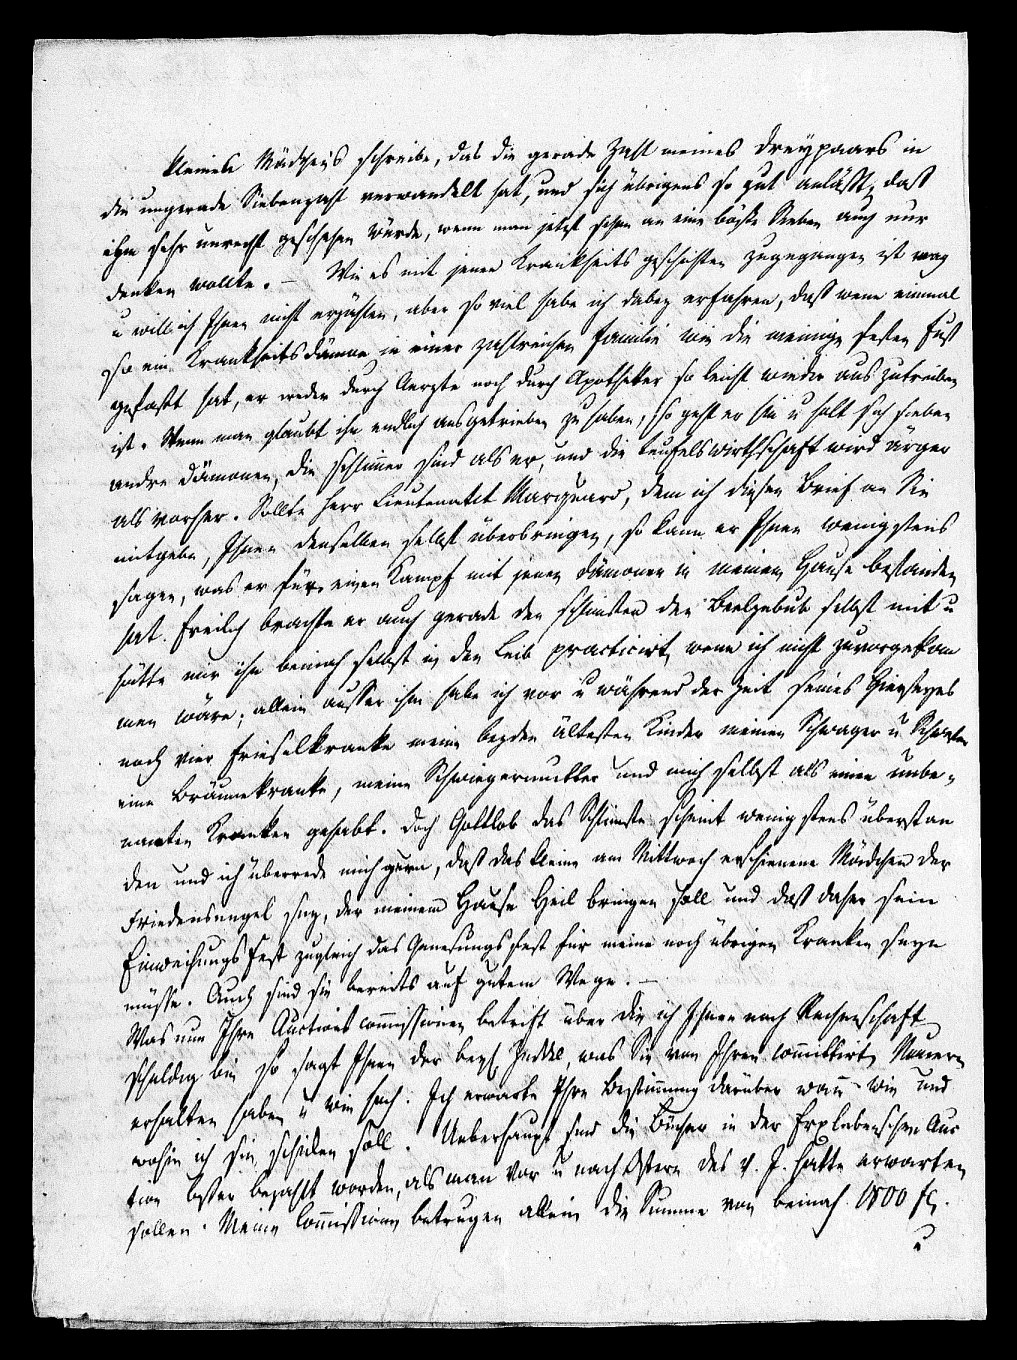 kleines Mädchens schreibe, das die gerade Zahl meines Dreypaars in
die ungerade Siebenzahl verwandelt hat, und sich übrigens so gut anläßt, daß
ihm sehr unrecht geschehen würde, wenn man jetzt schon an eine böse Sieben auch nur
denken wollte. – Wie es mit jenen Krankheits geschichten zugegangen ist mag
u will ich Ihnen nicht erzählen, aber so viel habe ich dabey erfahren, daß wenn einmal
so ein Krankheitsdämon in einer zahlreichen Familie wie die meinige festen Fuß
gefaßt hat, er weder durch Aerzte noch durch Apotheker so leicht wieder auszutreiben
ist. Wenn man glaubt ihn endlich ausgetrieben zu haben, so geht er hin u holt sich sieben
andre Dämonen, die schlimmer sind als er, und die Teufelswirthschaft wird ärger
als vorher. Sollte Herr Lieutenatet Marquard, dem ich diesen Brief an Sie
mitgebe, Ihnen denselben selbst überbringen, so kann er Ihnen wenigstens
sagen, was er für einen Kampf mit jenen Dämonen in meinem Hause bestanden
hat. Freilich brachte er auch gerade den schlimsten den Beelzebub selbst mit u
hätte mir ihn beinah selbst in den Leib practicirt, wenn ich nicht zuvorgekom
men wäre; allein ausser ihm habe ich vor u während der Zeit seines Hierseyns
noch vier Frieselkranke meine beyden ältesten Kinder meinen Schwager u Schwester
eine Bräunekranke, meine Schwiegermutter und mich selbst als einen unbe-
nannten Kranken gehabt. Doch Gottlob das Schlimste scheint wenigstens überstan
den und ich überrede mich gern, daß das kleine am Mittwoch erschienene Mädchen der
Friedensengel sey, der meinem Hause Heil bringen soll und daß daher sein
Einweihungs Fest zugleich das Genesungsfest für meine noch übrigen Kranken seyn
müsse. Auch sind sie bereits auf gutem Wege. –
Was nun Ihre Auctions commissionen betrift über die ich Ihnen noch Rechenschaft
schuldig bin so sagt Ihnen der beyl. Zeddel, was Sie von Ihren committirten Numern
erhalten haben u wie hoch. Ich erwarte Ihre Bestimmung darüber wann – wie und
wohin ich sie schicken soll. Ueberhaupt sind die Bücher in der Erxlebenschen Auc
tion besser bezahlt worden, als man vor u nach Ostern des v. J. hätte erwarten
sollen. Meine Commissionen betrugen allein die Summe von beinah 1800 fl.
u